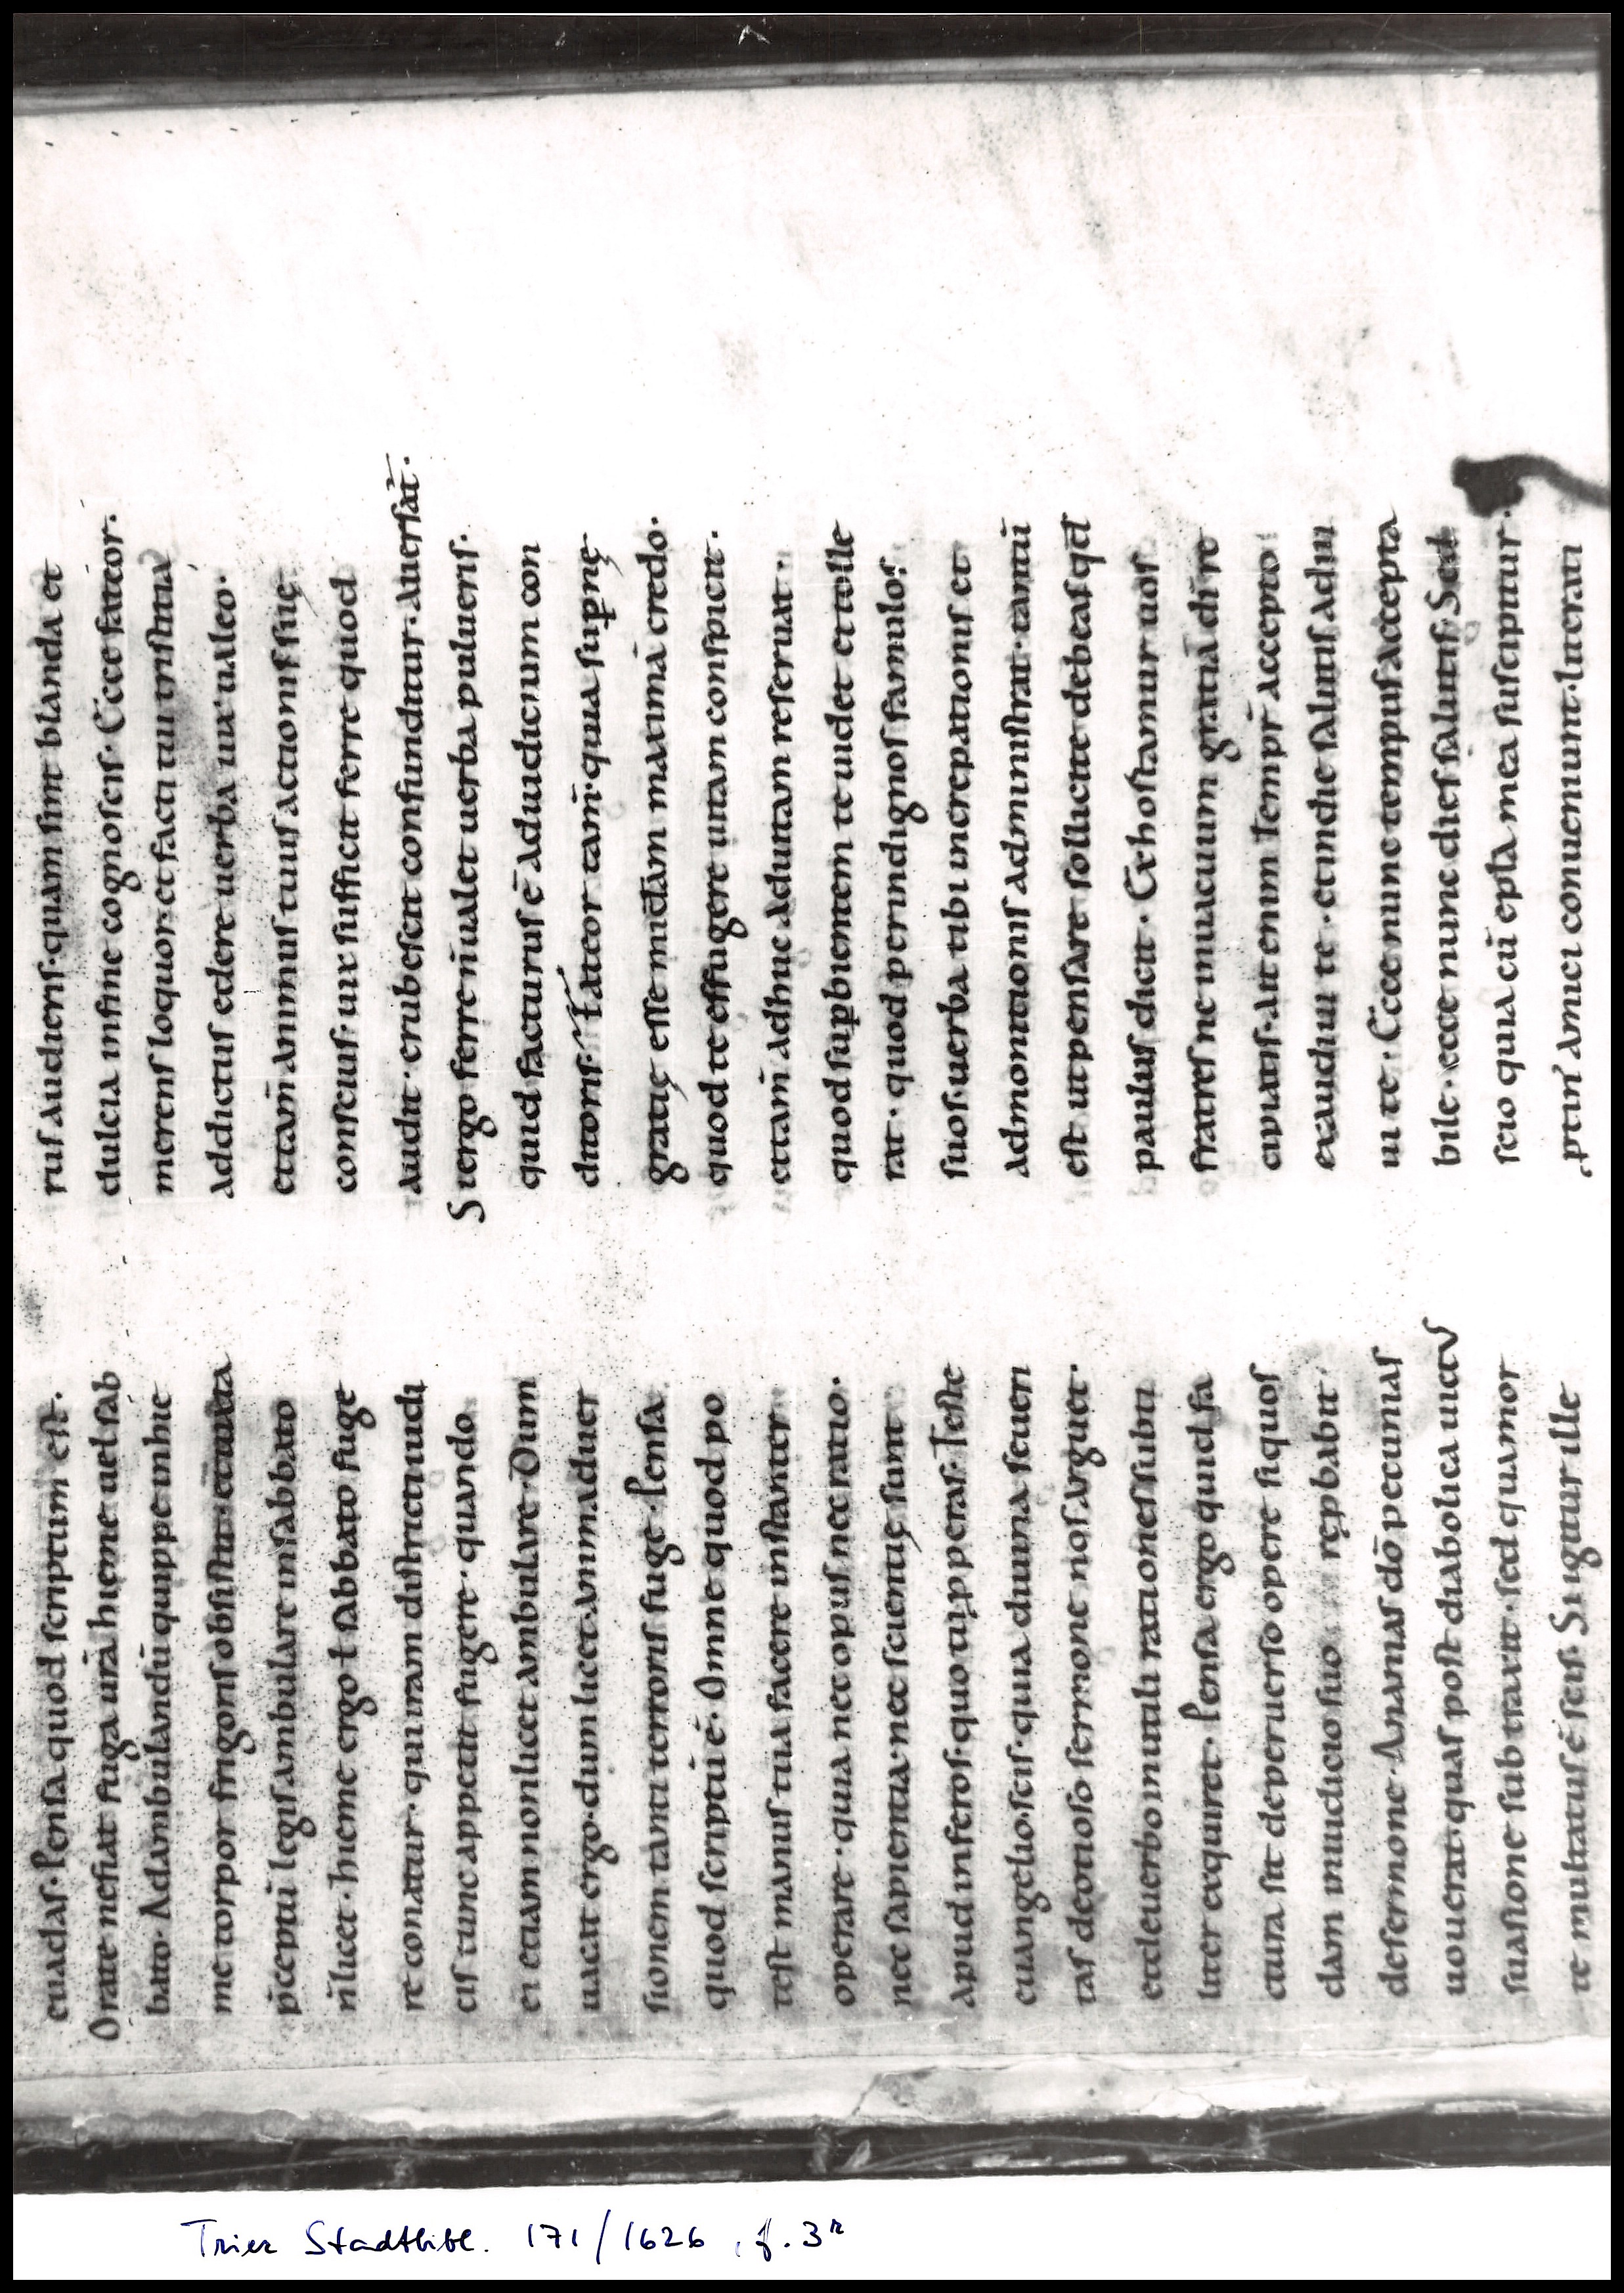 euadaſ. Penſa quod ſcriptum eſt.
Orate nefiat fuga urā hieme uel ſab
bato. Adambulandū quippe inhie
me torpor frigoriſ obſiſtit. et iuxta
p̄ceptū legiſ ambulare inſabbato
n̄ licet. hieme ergo ł ſabbato fuge
re conatur. qui iram diſtricti iudi
ciſ tunc appetit fugere. quando
ei etiam nonlicet ambulare. Dum
uacat ergo. dum licet. animaduer
ſionem tanti terroriſ fuge. Penſa
quod ſcriptū ē. Omne quod po
teſt manuſ tua facere inſtanter
operare. quia nec opuſ. nec ratio.
nec ſapientia. nec ſcientię ſunt
apud inferoſ. quo tu ꝓperaſ. Teſte
euangelio. ſciſ. quia diuina ſeueri
taſ deotioſo ſermone noſ arguet.
etdeuerbo inutili rationeſ ſubti
liter exquiret. Penſa ergo quid fa
ctura ſit deperuerſo opere ſi quoſ
dam iniudicio ſuo rep̱babit
deſermone. Ananiaſ dō pecuniaſ
uouerat. quaſ poſt diabolica uictuſ
ſuaſione ſub traxit. ſed qua mor
te multatuſ ē. ſciſ. Si igitur ille
ruſ audienſ. quam ſint blanda et
dulcia infine cognoſciſ. Ecce fateor.
merenſ loquor. et facti tui triſtitia
addictuſ edere uerba uix ualeo.
et tam̄ animuſ tuuſ actioniſ ſuę
conſciuſ. uix ſufficit ferre quod
audit. erubeſcit confunditur. auerſat̄.
Si ergo ferre n̄ ualet uerba puluerſ.
quid facturuſ ē adiudicium con
ditoriſ. Fateor tam̄. quia ſup̱nę
gratię eſſe mīdam maximā credo.
quod te effugere uitam conſpicit.
et tam̄ adhuc aduitam reſeruat.
quod ſup̱bientem te uidet et tolle
rat. quod perindignoſ famuloſ
ſuoſ. uerba tibi increpationiſ et
admonitioniſ adminiſtrat. tantū
eſt ut penſare ſollicite debeaſ qđ
pauluſ dicit. Exhoſtamur uoſ
fratreſ ne inuacuum gratiā dī re
cipiatiſ. Ait enim tempr̄ accepto
exaudiui te. et indie ſalutiſ adiu
ui te. Ecce nunc tempuſ accepta
bile. ecce nunc dieſ ſalutiſ. Sed
ſcio quia cū epſta mea ſuſcipitur.
ꝓtin' amici conueniunt. literati
Trier Stadtbibl. 171/1626, f. 3r